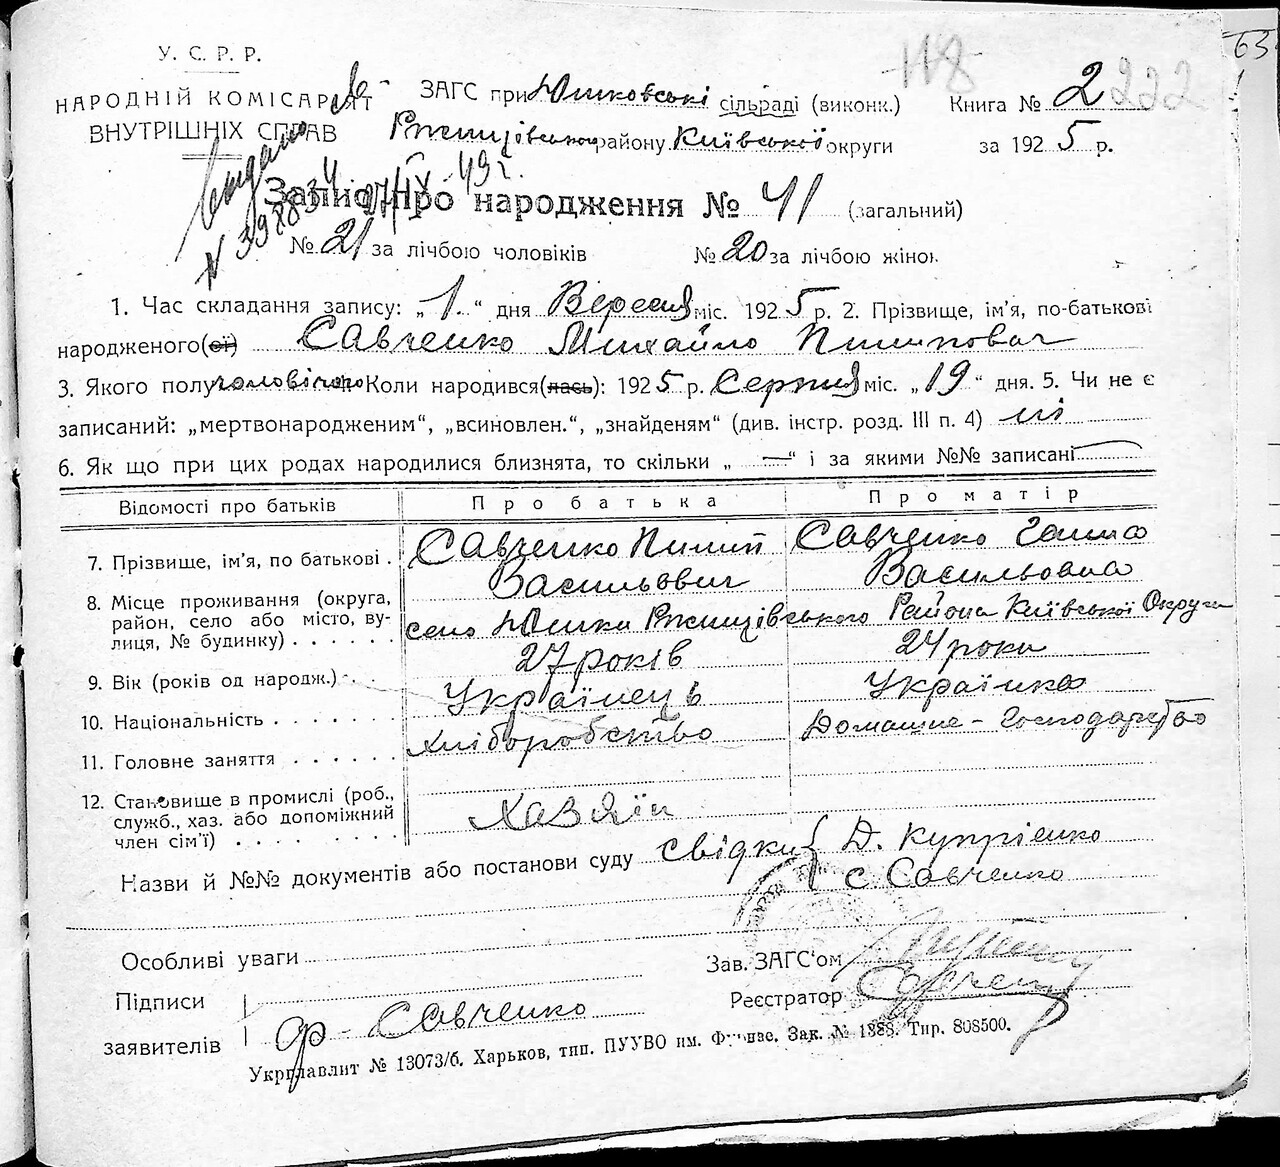 63
118
У. С. Р. Р.
НАРОДНІЙ КОМІСАРІЯТ
ВНУТРІШНІХ СПРАВ
ЗАГС при Юшковські сільраді (виконк.)
Книга № 2 222
Ржищівського району Київської округи
за 1925 р.
Видано
N 398834 27/IX-49 г.
Запис про народження № 41 (загальний)
№ 21 за лічбою чоловіків № 20 за лічбою жінок
1. Час складання запису: „1.“ дня Вересня міс. 1925 р. 2. Прізвище, ім’я, по-батькові
народженого(ої) Савченко Михайло Пилипович
3. Якого полу чоловічого Коли народився(лась): 1925 р. Серпня міс. „19“ дня. 5. Чи не є
записаний: „мертвонародженим“, „всиновлен.“, „знайденям“ (див. інстр. розд. III п. 4) ні
6. Як що при цих родах народилися близнята, то скільки „ — “ і за якими №№ записані
Відомості про батьків Про батька Про матір
7. Прізвище, ім’я, по батькові . Савченко Пилип Васильович Савченко Ганна Васильовна
8. Місце проживання (округа,
район, село або місто, ву-
лиця, № будинку) . . . . . село Юшки Ржищівського Района Київської Округи
9. Вік (років од народж.) . . 27 років 24 роки
10. Національність . . . . . . . Українець Українка
11. Головне заняття . . . . . . Хліборобство Домашнє - Господарство
12. Становище в промислі (роб.,
служб., хаз. або допоміжний
член сім’ї) . . . . . . . . Хазяїн
Назви й №№ документів або постанови суду свідки { Д. Купрієнко
с. Савченко
Особливі уваги
Зав. ЗАГС‘ом
Підписи
заявителів
Реєстратор
Савченко
Укрглавлит № 13073/б. Харьков, тип. ПУУВО им. Фрунзе. Зак. № 1388. Тир. 808500.